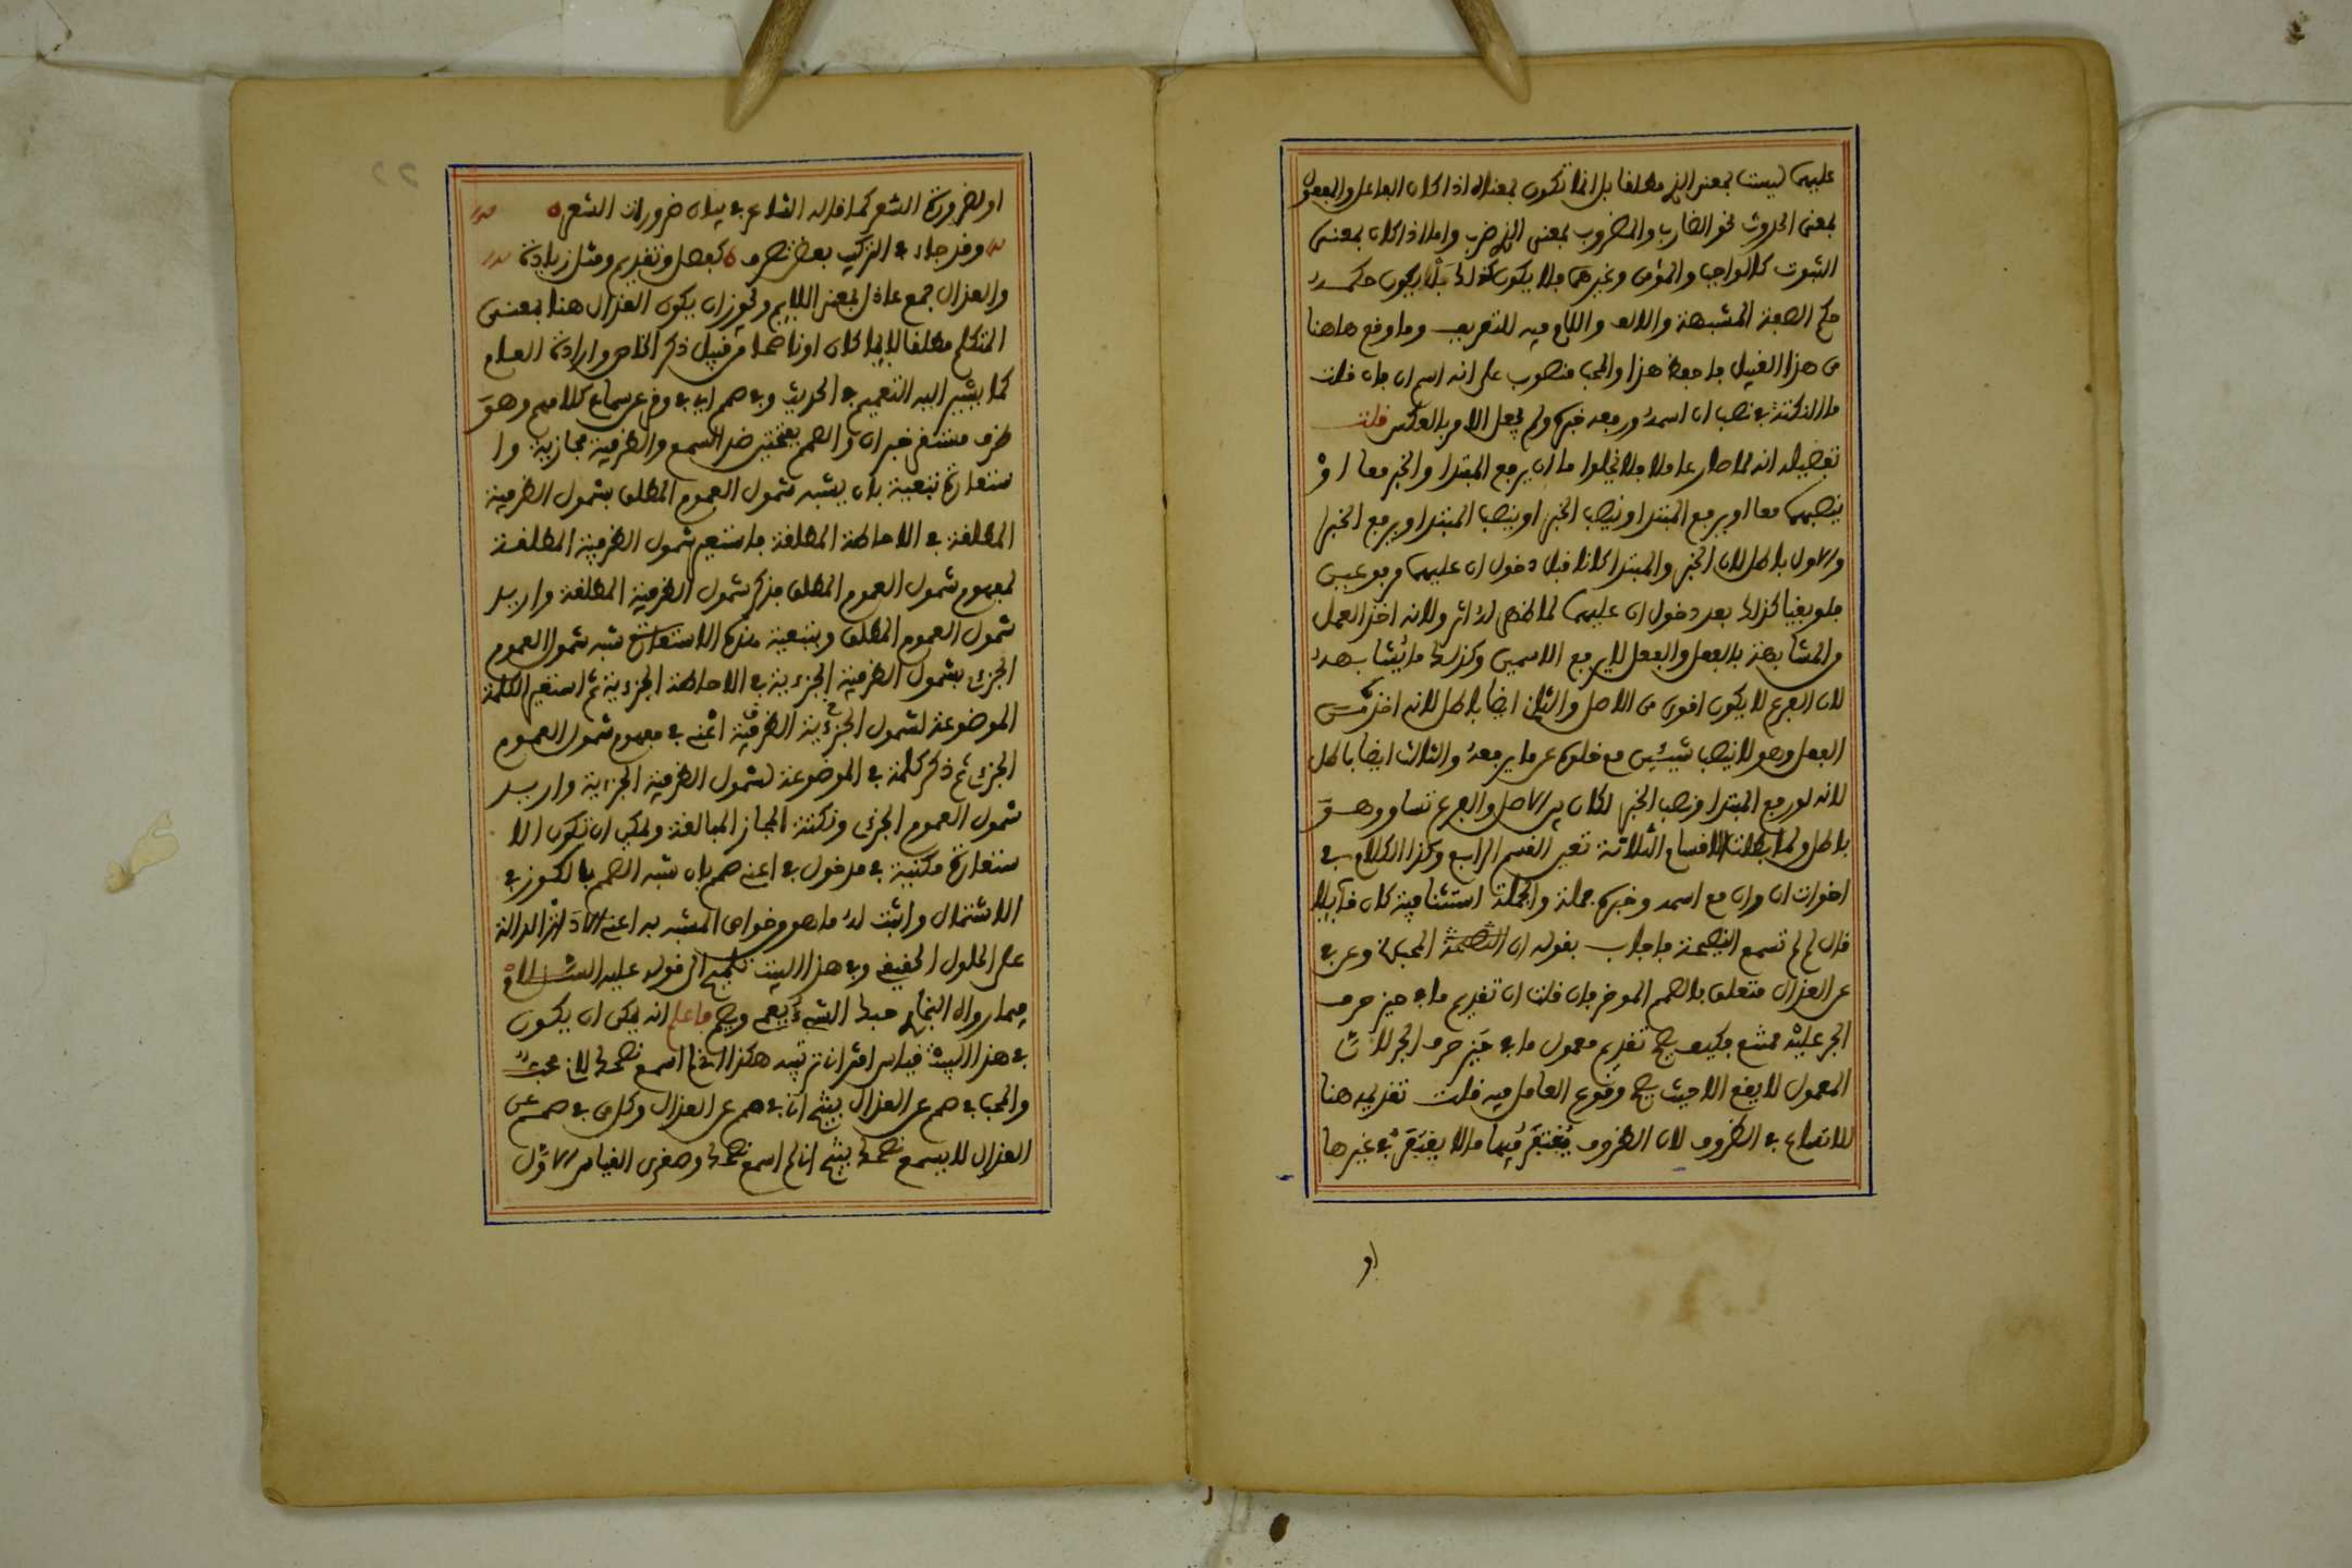 عليهما ليست بمعنى الذي مطلقا بل انما تكون بمعناه اذا كان الفاعل والمفعول
بمعنى الحدوث نحو الضارب والمضروب بمعنى الذي ضرب واما اذا كان بمعنى
الثبوت كالواجب والمؤمن وغيرهما فلا يكون كذلك بل يكون حكمه
حكم الصفة المشبهة والالف واللام فيه للتعريف وما وقع هاهنا
من هذا القبيل فاحفظ هذا والمحب منصوب على انه اسم ان فان قلت
ما النكتة في نصب ان اسمه ورفعه خبره ولم يجعل الامر بالعكس قلت
تفصيله انه لما صار عاملا فلا يخلوا ما ان يرفع المبتدا والخبر معا او
ينصبهما معا او يرفع المبتدا وينصب الخبر او ينصب المبتدا ويرفع الخبر
والاول باطل لان الخبر والمبتدا كانا قبل دخول ان عليهما مرفوعين
فلو بقيا كذلك بعد دخول ان عليهما لما ظهر له اثر ولانه اخذ العمل
من المشابهة بالفعل والفعل لا يرفع الاسمين وكذلك ما يشابهه
لان الفرع لا يكون اقوى من الاصل والثاني ايضا باطل لانه اخذ من
الفعل وهو لا ينصب شيئين مع خلوه عن ما يرفعه والثالث ايضا باطل
لانه لو رفع المبتدا ونصب الخبر لكان بين الاصل والفرع تساو وهو
باطل ولما بطلت الاقسام الثلاثة تعين القسم الرابع وكذا الكلام في
اخوات ان وان مع اسمه وخبره جملة والجملة استئنافية كان قائلا
قال لم لم تسمع النصحة فاجاب بقوله ان النصحة المحب وعن في
عن العذال متعلق بالصمم الموخر فان قلت ان تقديم ما في حيز حرف
الجر عليه ممتنع فكيف يصح تقديم معمول ما في حيز حرف الجر لان
المعمول لا يقع الا حيث يصح وقوع العامل فيه قلت تقديمه هنا
للاتساع في الظروف لان الظروف يغتفر فيها ما لا يغتفر في غيرها
او
او لضرورة الشعر كما قاله الشاعر في بيان ضرورات الشعر
وقد جاء في التركيب بعض تصرف كفصل وتقديم ومثل زيادة
والعذال جمع عاذل بمعنى اللايم ويجوز ان يكون العذال هنا بمعنى
المتكلم مطلقا لايما كان او ناصحا من قبيل ذكر الخاص وارادة العام
كما يشير اليه التعميم في الحديث وفي صمم اي في وقر عن سماع كلامهم وهو
ظرف مستقر خبر ان والصمم بفتحتين ضد السمع والظرفية مجازية وا
ستعارة تبعية بان يشبه شمول العموم المطلق بشمول الظرفية
المطلقة في الاحاطة المطلقة فاستعير شمول الظرفية المطلقة
لمفهوم شمول العموم المطلق فذكر شمول الظرفية المطلقة واريد
شمول العموم المطلق وبتبعية هذه الاستعارة شبه شمول العموم
الجزئ بشمول الظرفية الجزءية في الاحاطة الجزءية ثم استعير الكلمة
الموضوعة لشمول الجزءية الظرفية اعني في مفهوم شمول العموم
الجزئ ثم ذكر كلمة في الموضوعة لشمول الظرفية الجزءية واريد
شمول العموم الجزئ ونكتة المجاز المبالغة ويمكن ان تكون الا
ستعارة مكنية في مدخول في اعني صمم بان شبه الصمم بالكوز في
الاشتمال واثبت له ما هو من خواص المشبه به اعني الاداة الدالة
على الحلول الحقيقي وفي هذا البيت تلميح الى قوله عليه السلام
فيما رواه البخاري حبك الشيء يعمي ويصم فاعلم انه يمكن ان يكون
في هذا البيت قياس اقتران ترتيبه هكذا انا لم اسمع نصحك لاني محب
والمحب في صمم عن العذال ينتج انا في صمم عن العذال وكل من في صمم عن
العذال لا يسمع نصحك ينتج انا لم اسمع نصحك وصغرى القياس الاول